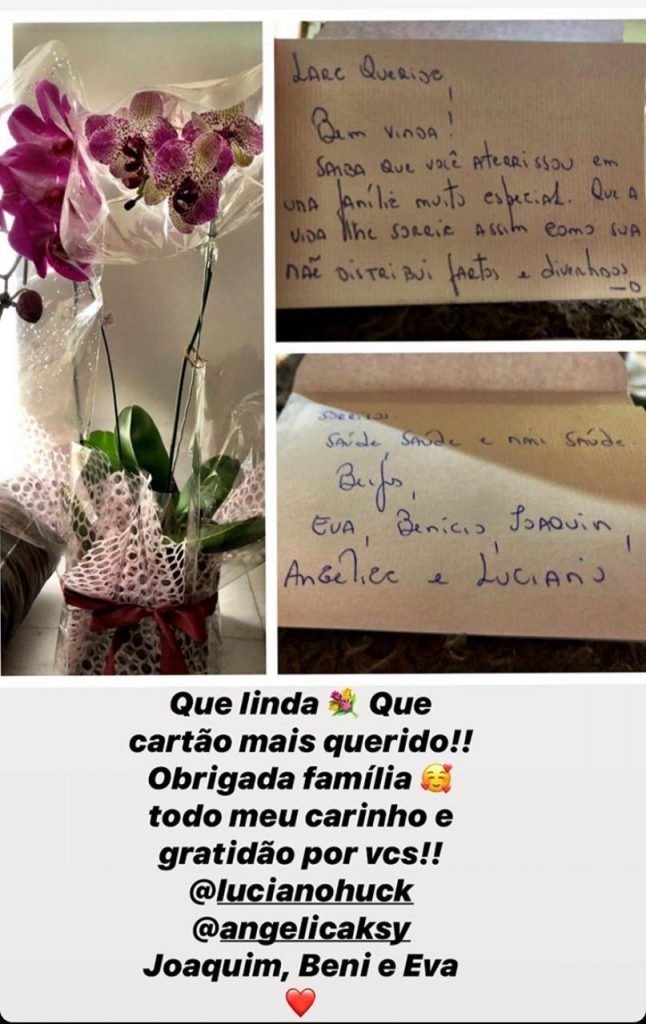 Lara Querida,
Bem vinda!
Saiba que você aterrissou em
uma família muito especial. Que a
vida lhe sorria assim como sua
mãe distribui fartos e divertidos
sorrisos.
Saúde, saúde e mais saúde.
Beijos,
Eva, Benício, Joaquim,
Angélica e Luciano
Que linda 💐 Que
cartão mais querido!!
Obrigada família 🥰
todo meu carinho e
gratidão por vcs!!
@lucianohuck
@angelicaksy
Joaquim, Beni e Eva
❤️